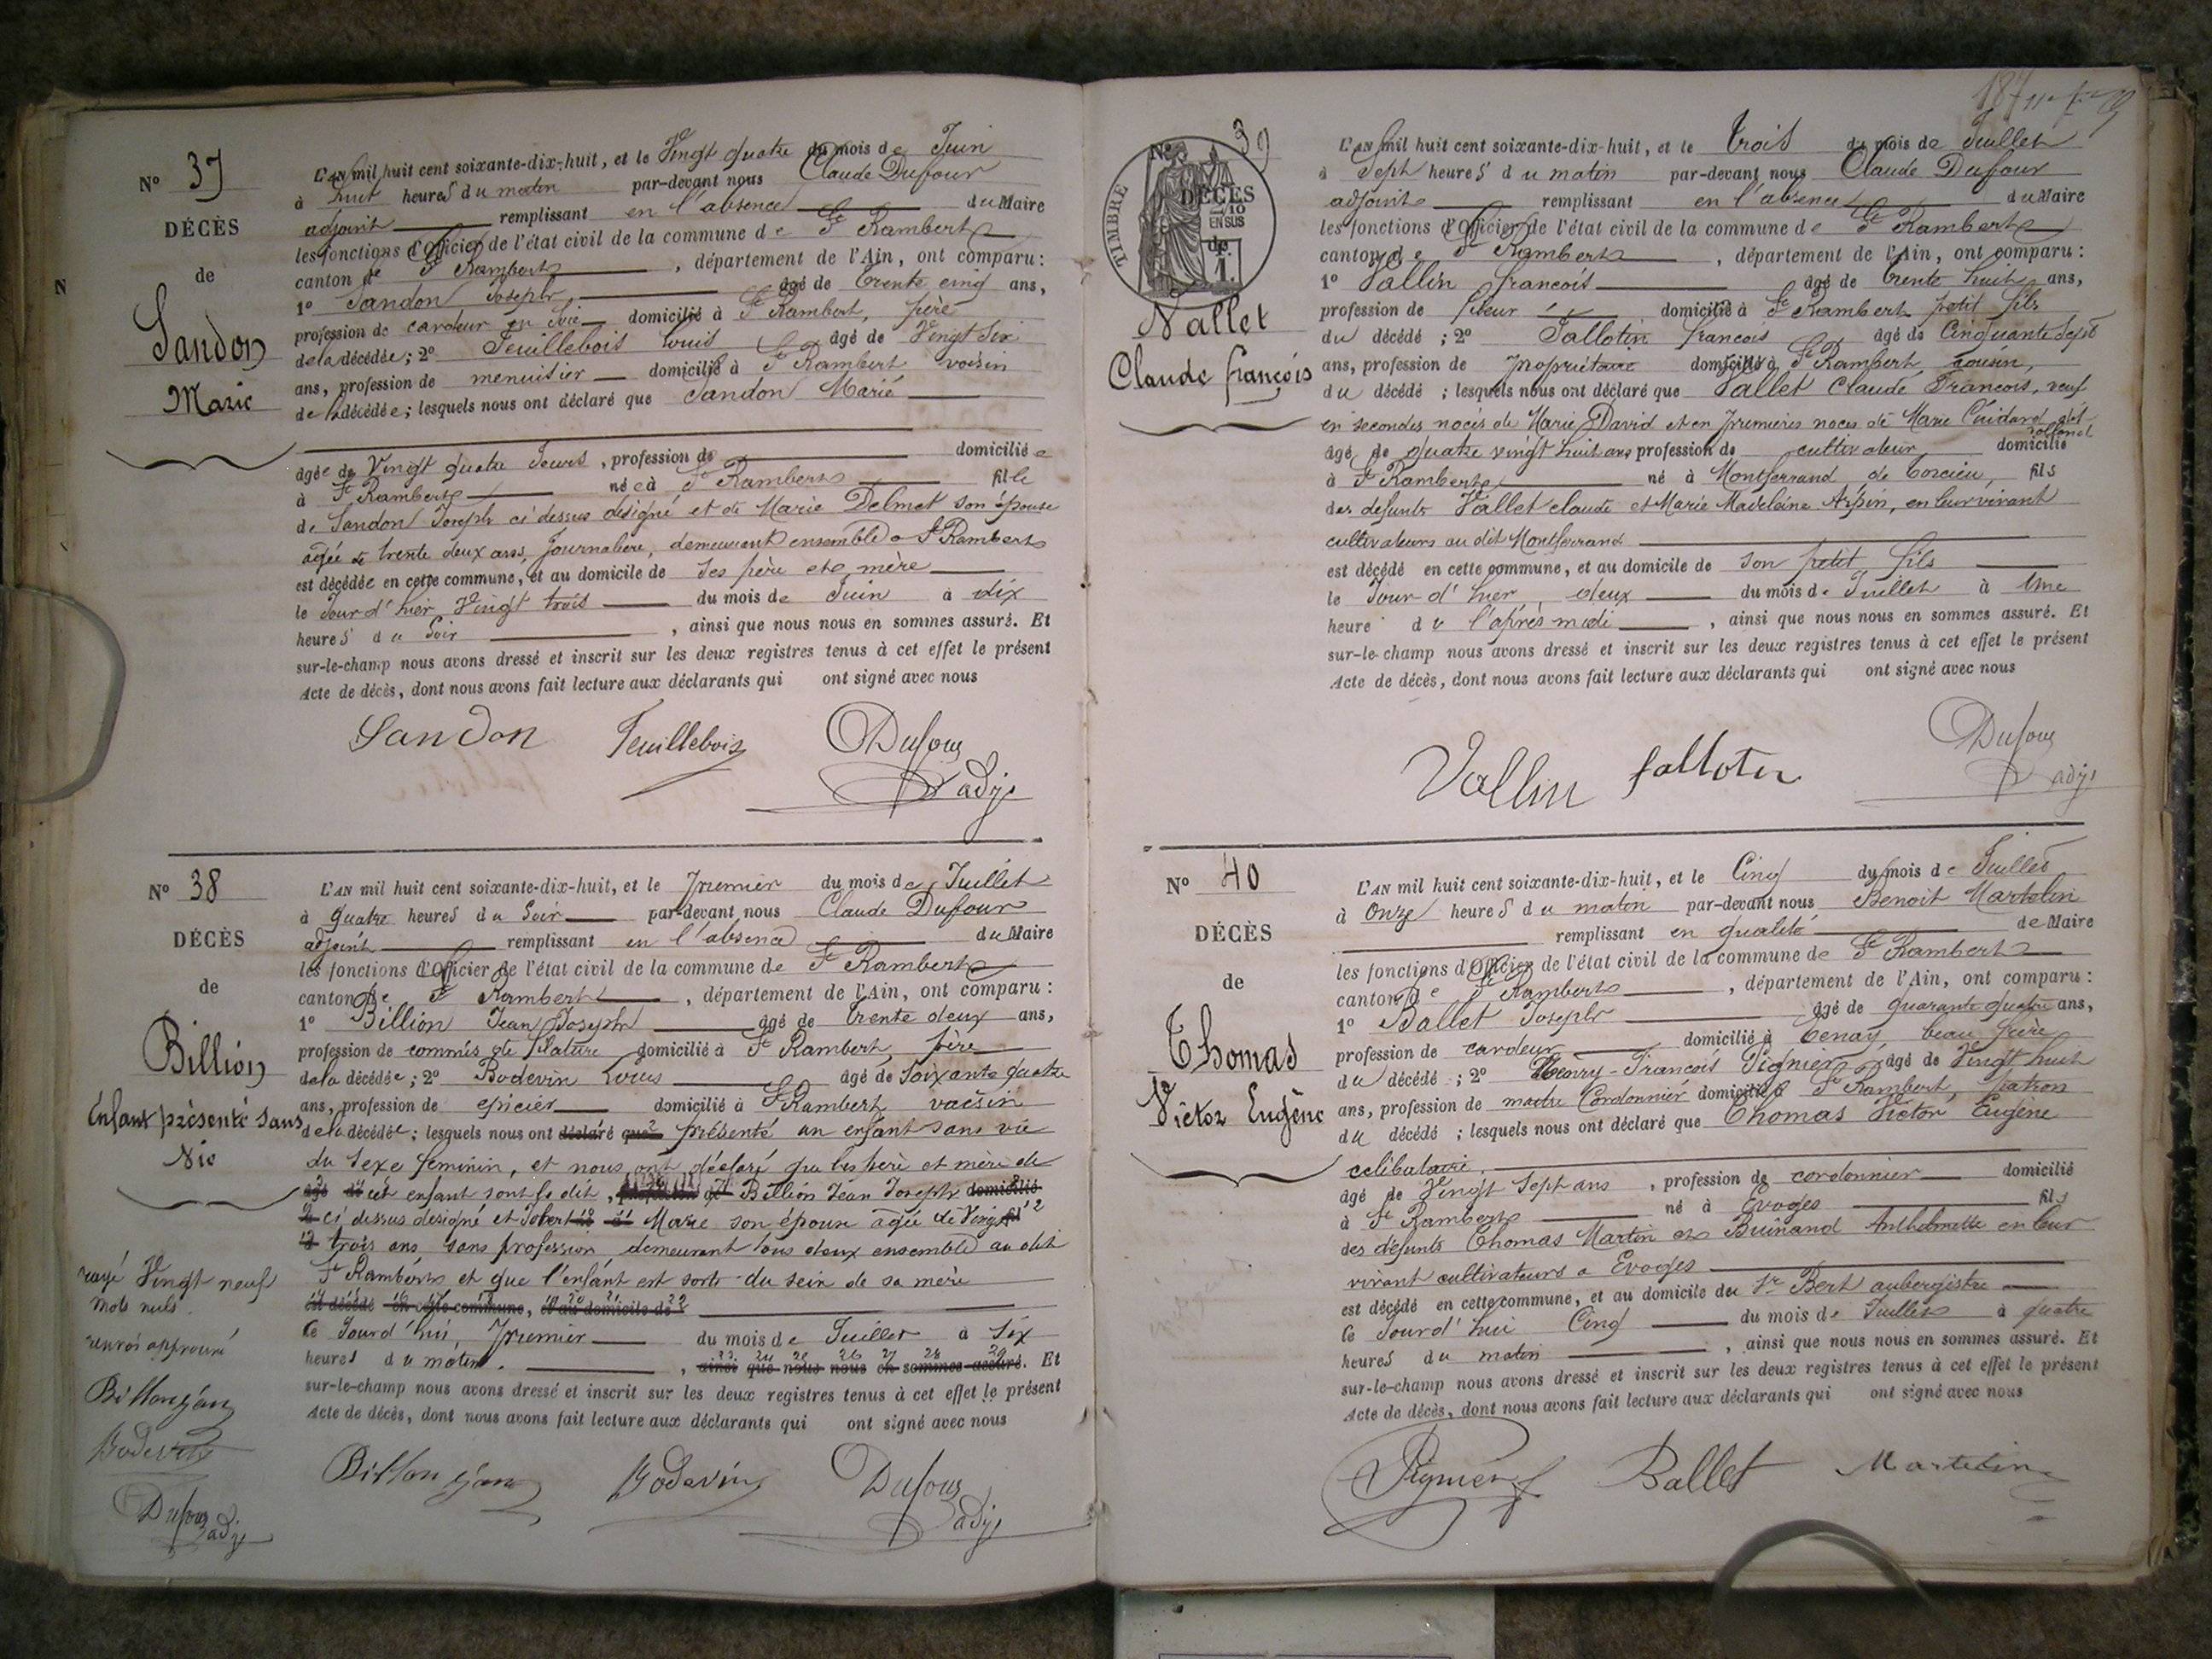 Nº 37
DÉCÈS
de
Sandon
Marie
L'AN mil huit cent soixante-dix-huit, et le Vingt quatre du mois de Juin
à huit heures du matin par-devant nous Claude Dufour
adjoint remplissant en l'absence du Maire
les fonctions d'Officier de l'état civil de la commune de St Rambert
canton de St Rambert, département de l'Ain, ont comparu :
1º Sandon Joseph âgé de trente cinq ans,
profession de cardeur en soie domicilié à St Rambert, père
de la décédée ; 2º Feuillebois Louis âgé de Vingt six
ans, profession de menuisier domicilié à St Rambert voisin
de la décédée ; lesquels nous ont déclaré que Sandon Marie
âgée de Vingt quatre Jours, profession de domiciliée
à St Rambert née à St Rambert fille
de Sandon Joseph ci dessus désigné et de Marie Delmet son épouse
agée de trente deux ans, Journalière, demeurant ensemble a St Rambert
est décédée en cette commune, et au domicile de ses père et mère
le Jour d'hier Vingt trois du mois de Juin à dix
heures du Soir, ainsi que nous nous en sommes assuré. Et
sur-le-champ nous avons dressé et inscrit sur les deux registres tenus à cet effet le présent
Acte de décès, dont nous avons fait lecture aux déclarants qui ont signé avec nous
Sandon Feuillebois Dufour
adj
Nº 38
DÉCÈS
de
Billion
Enfant présenté sans
Vie
L'AN mil huit cent soixante-dix-huit, et le premier du mois de Juillet
à quatre heures du Soir par-devant nous Claude Dufour
adjoint remplissant en l'absence du Maire
les fonctions d'Officier de l'état civil de la commune de St Rambert
canton de St Rambert, département de l'Ain, ont comparu :
1º Billion Jean Joseph âgé de trente deux ans,
profession de commis de filature domicilié à St Rambert, père
de la décédée ; 2º Bodevin Louis âgé de Soixante quatre
ans, profession de epicier domicilié à St Rambert voisin
de la décédée ; lesquels nous ont déclaré que présenté un enfant sans vie
du sexe feminin, et nous ont déclaré que les père et mère de
cet enfant sont le dit, Billion Jean Joseph domicilié
ci dessus désigné et Marie son épouse agée de Vingt
trois ans sans profession demeurant tous deux ensemble au dit
St Rambert et que l'enfant est sorti du sein de sa mère
est décédé en cette commune, et au domicile de
le Jourd'hui premier du mois de Juillet à Six
heures du matin, ainsi que nous nous en sommes assuré. Et
sur-le-champ nous avons dressé et inscrit sur les deux registres tenus à cet effet le présent
Acte de décès, dont nous avons fait lecture aux déclarants qui ont signé avec nous
rayé Vingt neuf
mots nuls
renvoi approuvé
Billon jean
Bodevin
Dufour
adj
Billon jean Bodevin Dufour
adj
187
Nº 39
TIMBRE
DÉCÈS
2/10
EN SUS
de
1.
Vallet
Claude françois
L'AN mil huit cent soixante-dix-huit, et le trois du mois de Juillet
à Sept heures du matin par-devant nous Claude Dufour
adjoint remplissant en l'absence du Maire
les fonctions d'Officier de l'état civil de la commune de St Rambert
canton de St Rambert, département de l'Ain, ont comparu :
1º Vallin francois âgé de trente huit ans,
profession de domicilié à St Rambert petit fils
du décédé ; 2º Fallotin francois âgé de Cinquante Sept
ans, profession de propriétaire domicilié à St Rambert cousin,
du décédé ; lesquels nous ont déclaré que Vallet Claude Francois, veuf
en secondes noces de Marie David et en premieres noces de Marie
âgé de quatre vingt huit ans profession de cultivateur domicilié
à St Rambert né à Montferrand, de Torcieu, fils
des defunts Vallet claude et Marie Madeleine Arpin, en leur vivant
cultivateurs au dit Montferrand
est décédé en cette commune, et au domicile de son petit fils
le Jour d'hier, deux du mois de Juillet à Une
heure de l'après midi, ainsi que nous nous en sommes assuré. Et
sur-le-champ nous avons dressé et inscrit sur les deux registres tenus à cet effet le présent
Acte de décès, dont nous avons fait lecture aux déclarants qui ont signé avec nous
Vallin falloten Dufour
adj
Nº 40
DÉCÈS
de
Thomas
Victor Eugène
L'AN mil huit cent soixante-dix-huit, et le Cinq du mois de Juillet
à Onze heures du matin par-devant nous Benoit Martelin
remplissant en qualité de Maire
les fonctions d'Officier de l'état civil de la commune de St Rambert
canton de St Rambert, département de l'Ain, ont comparu :
1º Ballet Joseph âgé de quarante quatre ans,
profession de cardeur domicilié à Tenay, beau frère
du décédé ; 2º Henry-Francois Pignier âgé de Vingt huit
ans, profession de maître Cordonnier domicilié à St Rambert, patron
du décédé ; lesquels nous ont déclaré que Thomas Victor Eugène
célibataire,
âgé de Vingt Sept ans, profession de cordonnier domicilié
à St Rambert né à Evoges fils
des défunts Thomas Martin et Buinand Anthelmette en leur
vivant cultivateurs a Evoges
est décédé en cette commune, et au domicile du Sr Bert aubergiste
le Jourd'hui Cinq du mois de Juillet à quatre
heures du matin, ainsi que nous nous en sommes assuré. Et
sur-le-champ nous avons dressé et inscrit sur les deux registres tenus à cet effet le présent
Acte de décès, dont nous avons fait lecture aux déclarants qui ont signé avec nous
Pignier Ballet Martelin